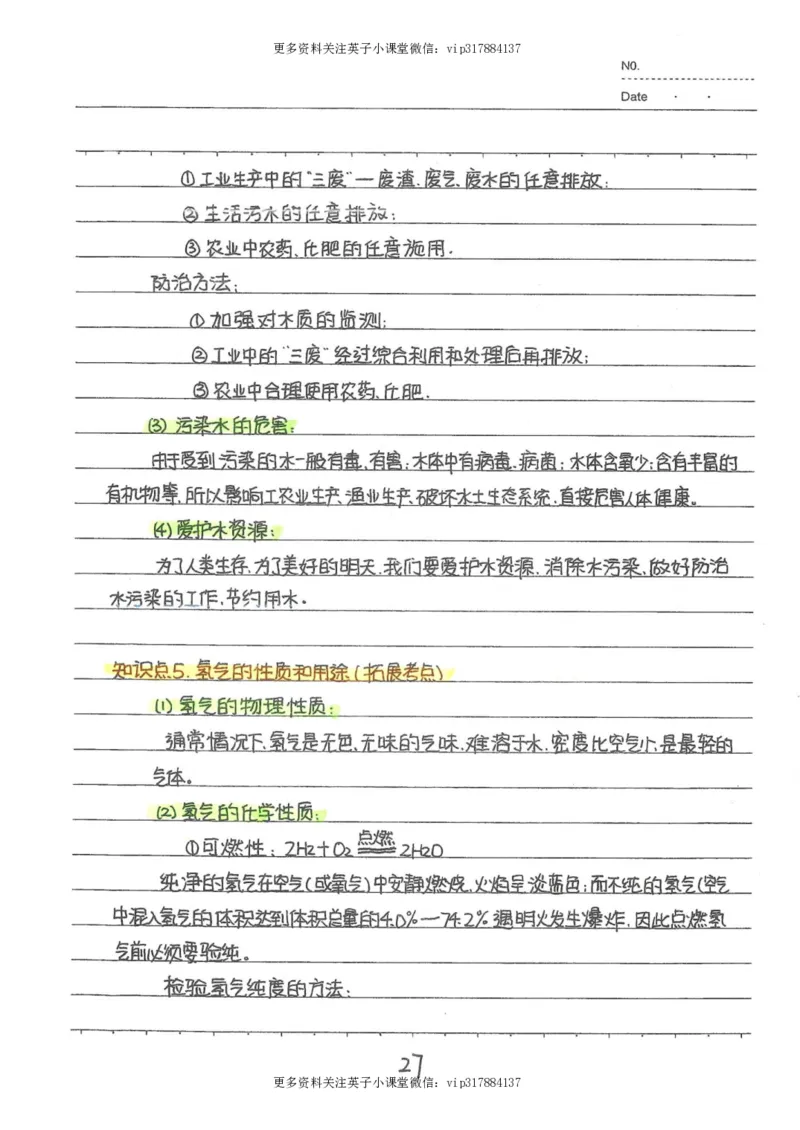 更多资料关注英子小课堂微信：vip317884137
NO.
Date · ·
①工业生产中的“三废”—废渣、废气、废水的任意排放；
②生活污水的任意排放；
③农业中农药、化肥的任意施用.
防治方法：
①加强对水质的监测；
②工业中的“三废”经过综合利用和处理后再排放；
③农业中合理使用农药、化肥.
(3)污染水的危害：
由于受到污染的水一般有毒、有害；水体中有病毒、病菌；水体含氧少；含有丰富的
有机物等，所以影响工农业生产、渔业生产、破坏水土生态系统、直接危害人体健康。
(4)爱护水资源：
为了人类生存，为了美好的明天，我们要爱护水资源，消除水污染，做好防治
水污染的工作，节约用水.
知识点5.氢气的性质和用途(拓展考点)
(1)氢气的物理性质：
通常情况下，氢气是无色、无味的气味，难溶于水，密度比空气小，是最轻的
气体。
(2)氢气的化学性质：
①可燃性：2H2+O2 点燃 2H2O
纯净的氢气在空气(或氧气)中安静燃烧，火焰呈淡蓝色；而不纯的氢气(空气
中混入氢气的体积达到体积总量的4.0%—74.2%遇明火发生爆炸，因此点燃氢
气前必须要验纯。
检验氢气纯度的方法：
27
更多资料关注英子小课堂微信：vip317884137